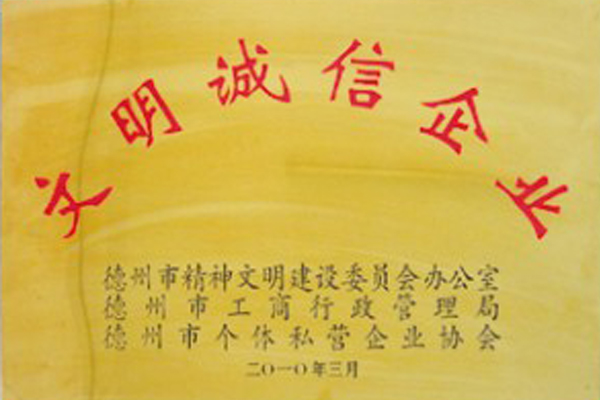 文明诚信企业
德州市精神文明建设委员会办公室
德州市工商行政管理局
德州市个体私营企业协会
二〇一〇年三月